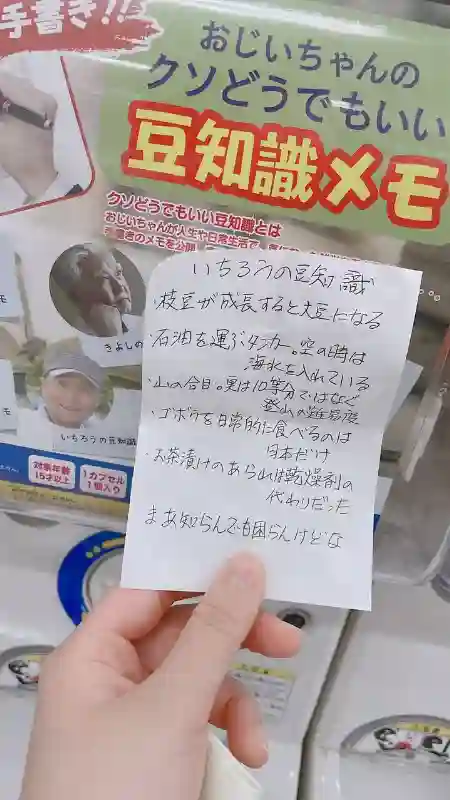 手書き!!
おじいちゃんの
クソどうでもいい
豆知識メモ
クソどうでもいい豆知識とは
おじいちゃんが人生や日常生活で
手書きのメモを公開
きよしの
いちろうの豆知識
対象年齢
15才以上
1カプセル
1個入り
いちろうの豆知識
・枝豆が成長すると大豆になる
・石油を運ぶタンカー。空の時は
海水を入れている
・山の合目。実は10等分ではなく
登山の難易度
・ゴボウを日常的に食べるのは
日本だけ
・お茶漬けのあられは乾燥剤の
代わりだった
まあ知らんでも困らんけどな